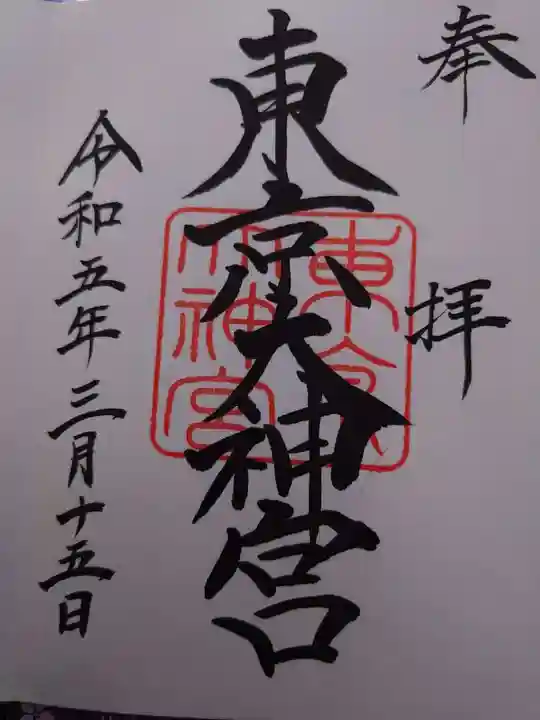 奉拝
東京大神宮
東京大神宮
令和五年三月十五日